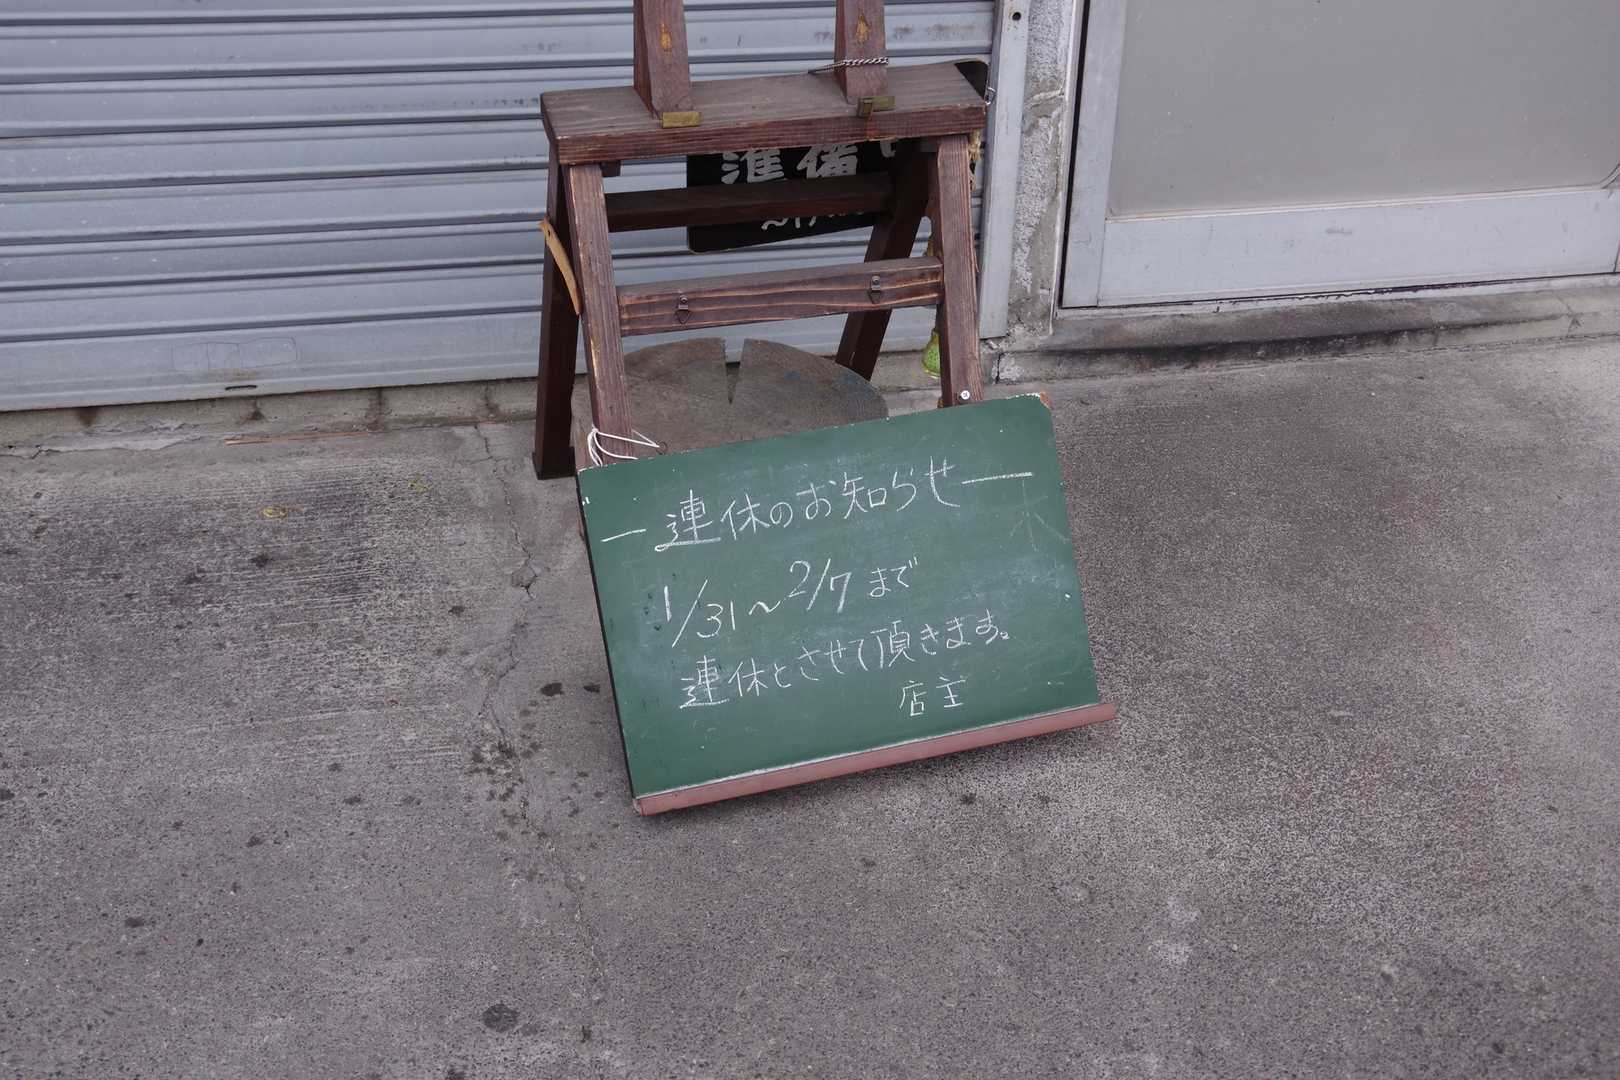 準備
ー連休のお知らせー
1/31〜2/7まで
連休とさせて頂きます。
店主